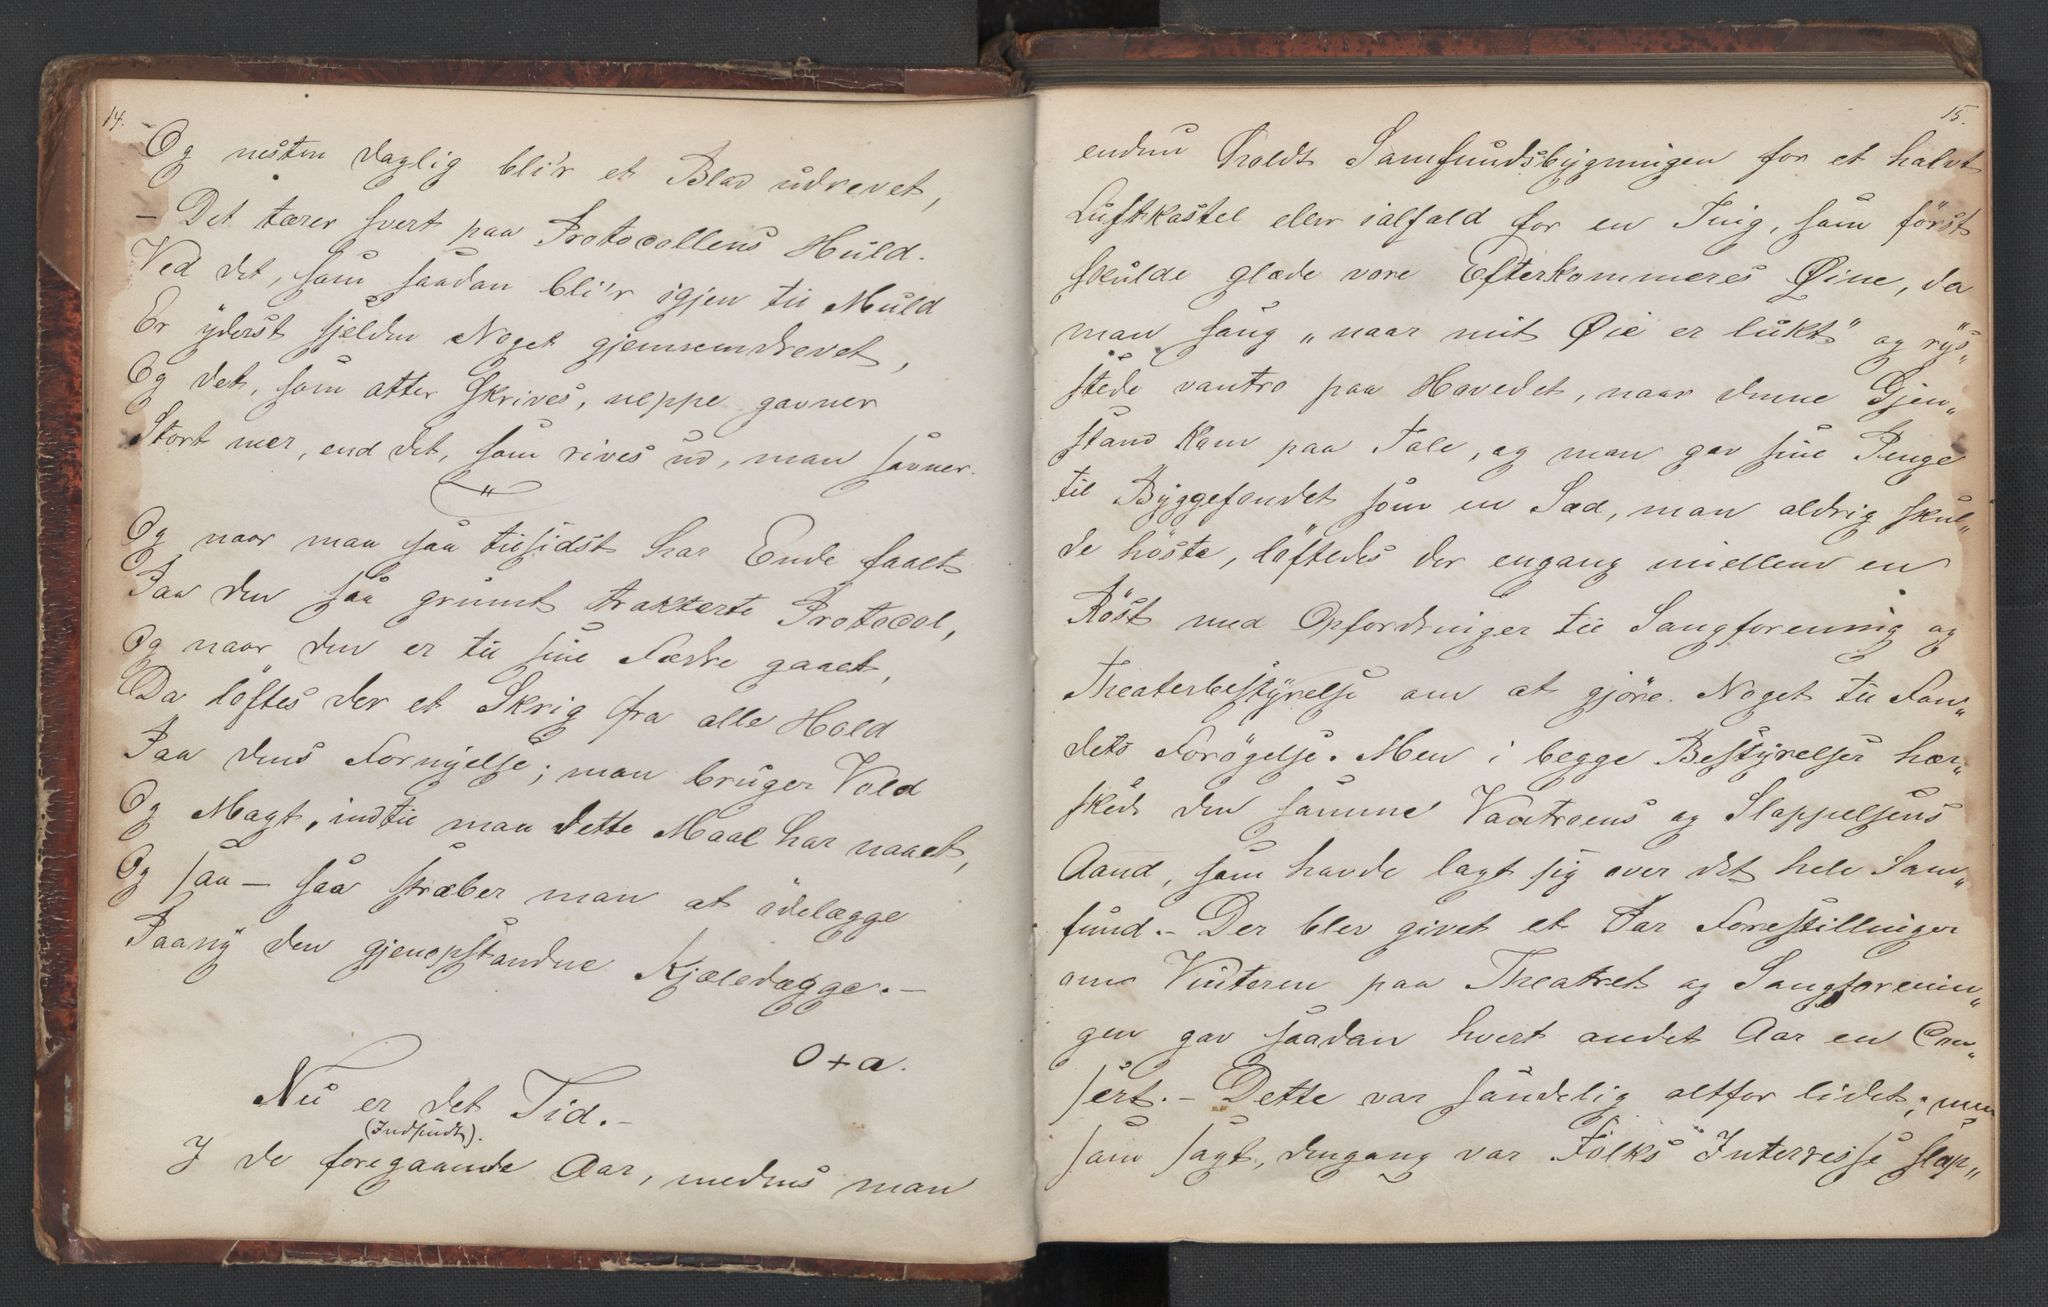 14.
Og nesten daglig bli'r et Blad udrevet,
– Det tærer svert paa Protocollens Huld.
Ved det, som saadan bli'r igjen til Muld
Er yderst sjelden Noget gjennemdrevet,
Og det, som atter skrives, neppe gavner
Stort mer, end det, som rives ud, man savner.
Og naar man saa tilsidst har Ende faaet
Paa den saa grumt trakterte Protocol,
Og naar den er til sine Fædre gaaet,
Da löftes der et Skrig fra alle Hold
Paa dens Fornyelse; man bruger Vold
Og Magt, indtil man dette Maal har naaet,
Og saa – saa stræber man at ödelægge
Paany den gjenopstandne Kjæledægge. –
O+a.
Nu er det Tid. –
(Indsendt).
I de foregaaende Aar, medens man
15.
endnu holdt Samfundsbygningen for et halvt
Luftkastel eller ialfald for en Ting, som först
skulde glæde vore Efterkommeres Øine, da
man sang „naar mit Øie er lukt“ og rys„
stede vantro paa Hovedet, naar denne Gjen„
stand kom paa Tale, og man gav sine Penge
til Byggefondet som en Sæd, man aldrig skul„
de höste, löftedes der engang imellem en
Röst med Opfordringer til Sangforening og
Theaterbestyrelse om at gjöre Noget til Fon„
dets Forögelse. Men i begge Bestyrelser her„
skede den samme Vantroens og Slappelsens
Aand, som havde lagt sig over det hele Sam„
fund. – Der blev givet et Par Forestillinger
om Vinteren paa Theatret og Sangforenin„
gen gav saadan hvert andet Aar en Con„
sert. – Dette var sandelig altfor lidet; men
som sagt, dengang var Folks Interesse slap„